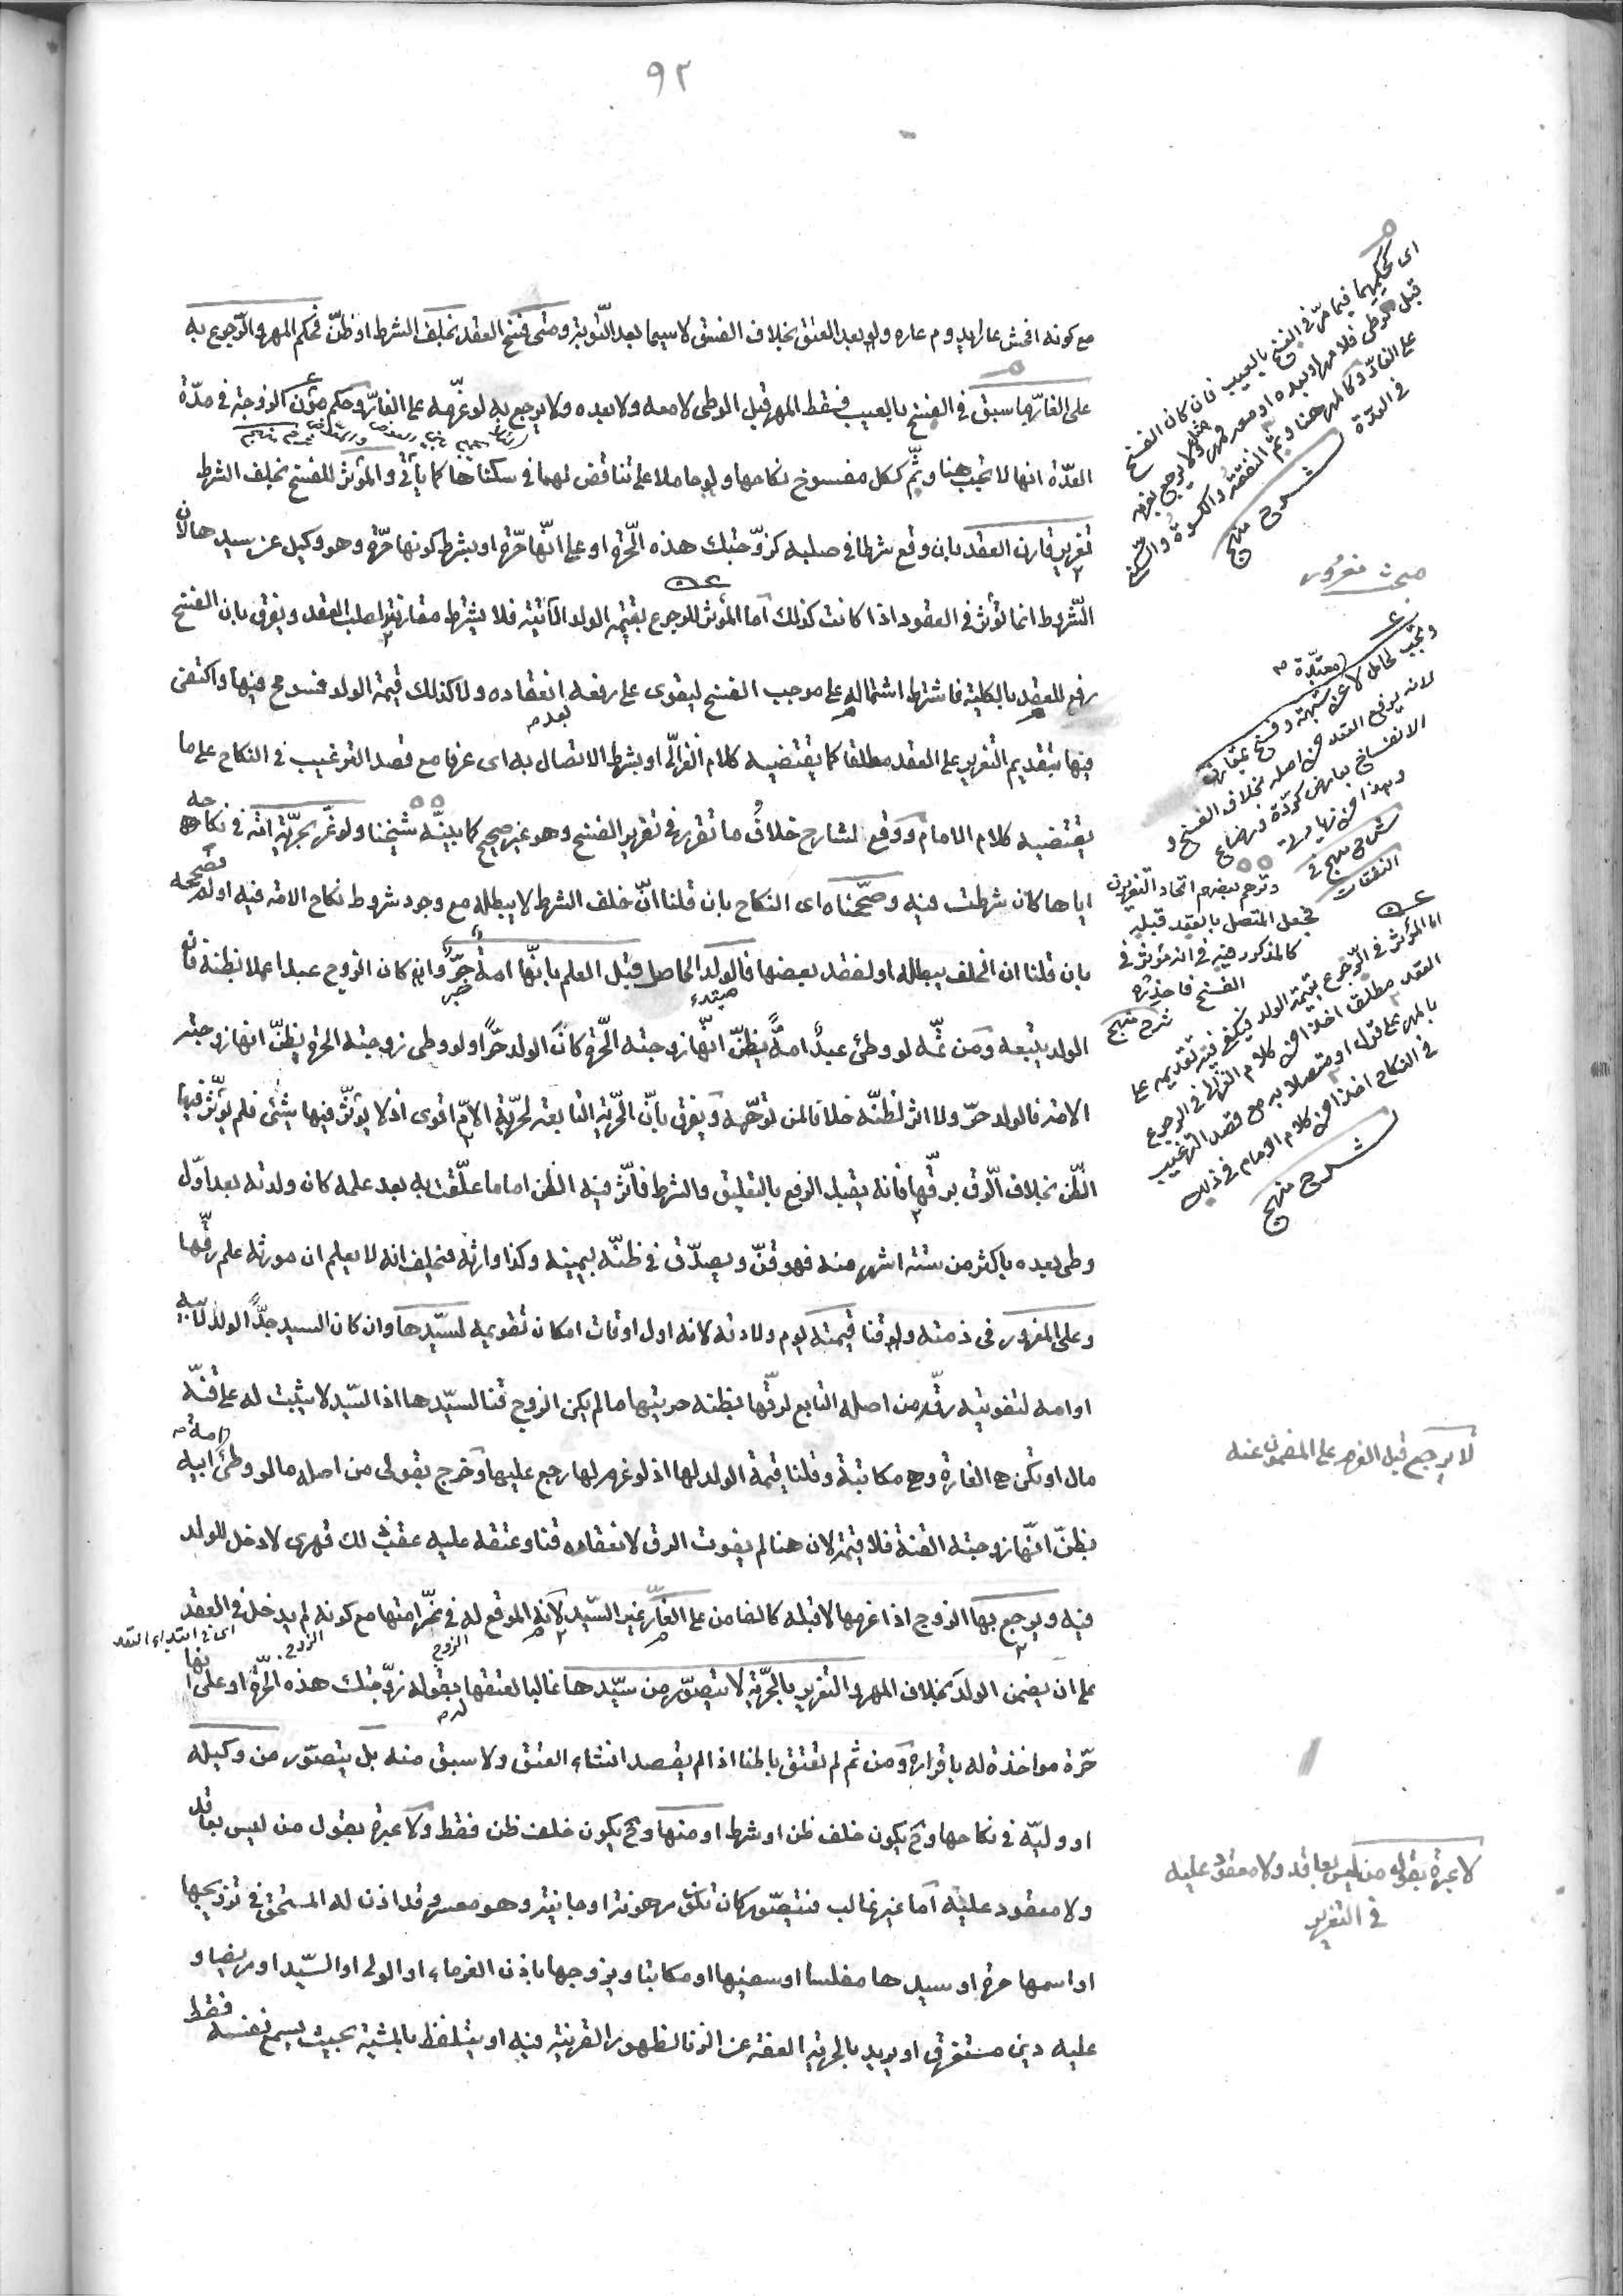 ٩٢
مع كونه افحش عارا لدوام عاره ولو بعد العتق بخلاف الفسق لاسيما بعد التّوبة ومتى فسخ العقد بخلف الشرط او ظنّ فحكم المهر والرّجوع به
على الغارّ ما سبق في الفسخ بالعيب فيسقط المهر قبل الوطى لا معه ولا بعده ولا يرجع به لو غرّمه على الغارّ وحكم مؤن الزوجة في مدّة
العدّة انها لا تجب هنا وثَمّ ككل مفسوخ نكاحها ولو حاملا على تناقض لهما في سكناها كما يأتي والمؤثر للفسخ بخلف الشرط
تغرير قارن العقد بان وقع شرطا في صلبه كزوّجتك هذه الحرّة او على انّها حرّة او بشرط كونها حرّة وهو وكيل عن سيدها لان
الشّروط انما تؤثر في العقود اذا كانت كذلك امّا المؤثر للرجوع بقيمة الولد الآتية فلا يشترط مقارنته لصلب العقد ويفرق بان الفسخ
رفع للعقد بالكلية فاشترط اشتماله على موجب الفسخ ليقوى على رفعه بعد انعقاده ولا كذلك قيمة الولد فسومح فيها واكتفى
فيها بتقديم التغرير على العقد مطلقا كما يقتضيه كلام الغزالّي او بشرط الاتصال به اى عرفا مع قصد الترغيب في النكاح على ما
يقتضيه كلام الامام ووقع لشارح خلافُ ما تقرر في تغرير الفسخ وهو غير صحيح كما بينّه شيخنا ولو غُرّ بحرّية امة في نكاحه
اياها كان شرطت فيه وصحّحناه اى النكاح بان قلنا انّ خلف الشرط لا يبطله مع وجود شروط نكاح الامة فيه او لم نصححه
بان قلنا ان الخلف يبطله او لفقد بعضها فالولد الحاصل قبل العلم بانّها امةٌ حرٌّ وان كان الزوج عبدا عملا بظنه فانه
الولد يتبعه ومن ثَمّه لو وطئ عبدٌ امةً يظنّ انّها زوجته الحّرة كان الولد حرًّا ولو وطى زوجته الحرة يظنّ انها زوجته
الامة فالولد حرّ ولا اثر لظنّه خلافا لمن توهّمه ويفرق بانّ الحّرية التابعة لحرّية الامّ اقوى اذ لا يؤثّر فيها شئ فلم يؤثّر فيها
الظّن بخلاف الرّق برقّها فانه يقبل الرفع بالتعليق والشرط فاثّر فيه الظن اما ما علّقت به بعد علمه كان ولدته بعد اوّل
وطى بعده باكثر من ستة اشهر منه فهو قنّ ويصدّق في ظنّه بيمينه وكذا وارثه فيحلف انه لا يعلم ان مورثه علم رقّها
وعلى المغرور في ذمته ولو قنا قيمته يوم ولادته لانه اول اوقات امكان تقويمه لسيّدها وان كان السيد جدًّا للولد لابيه
او امه لتفويته رقّه من اصله التابع لرقّها بظنه حريتها ما لم يكن الزوج قنا لسيّدها اذ السيّد لا يثبت له على قنّه
مال او تكن هي الغارة وهي مكاتبة وقلنا قيمة الولد لها اذ لو غرم لها رجع عليها وخرج بقولى من اصله ما لو وطئ امة ابيه
يظنّ انّها زوجته القنة فلا قيمة لان هنا لم يفوت الرق لانعقاده قنا وعتقه عليه عقب ذلك قهرى لا دخل للولد
فيه ويرجع بها الزوج اذا غرمها لا قبله كالضامن على الغارّ غير السّيد لانه الموقع له في غرامتها مع كونه لم يدخل في العقد
على ان يضمن الولد بخلاف المهر والتغرير بالحرّية لا يتصوّر من سيّدها غالبا لعتقها بقوله زوّجتك هذه الحرّة او على انها
حّرة مواخذة له باقراره ومن ثم لم تعتق باطنا اذا لم يقصد انشاء العتق ولا سبق منه بل يتصوّر من وكيله
او وليّه في نكاحها وح يكون خلف ظن او شرط او منها وح يكون خلف ظن فقط ولا عبرة بقول من ليس بعاقد
ولا معقود عليه امّا غير غالب فيتصوّر كان تكون مرهونة او جانية وهو معسر وقد اذن له المستحق في تزويجها
او اسمها حرة او سيدها مفلسا او سفيها او مكاتبا ويزوجها باذن الغرماء او الولى او السّيد او مريضا و
عليه دين مستغرق او يريد بالحرية العفة عن الزنا لظهور القرينة فيه او يتلفظ بالمشية بحيث يسمع نفسه فقط
خبر
مبتدء
الزوج
الزوج
اى في ابتداء العقد
اى كحكمهما فيما مرّ في الفسخ بالعيب فان كان الفسخ
قبل الوطى فلا مهر او بعده او معه فمهر مثل ولا يرجع بغرمه
على الغارّ وكالمهر هنا وثم النفقة والكسوة والسكنى
في العدّة
شرح منهج
مبحث تغرُور
وتجب لحامل لا عن شبهة وفسخ بمقارن
لانه يرفع العقد من اصله بخلاف الفسخ و
الانفساخ بعارض كردّة ورضاع
شرح منهج في
النفقات
وتوهم بعضهم اتحاد التغريرين
فجعل المتصل بالعقد قبله
كالمذكور فيه في انه مؤثر في
الفسخ فاحذره
شرح منهج
اما المؤثر في الرّجوع بقيمة الولد فيكفى فيه تقديمه على
العقد مطلقا اخذا من كلام الغزالى في الرجوع
بالمهر على قول او متصلا به مع قصد الترغيب
في النكاح اخذا من كلام الامام في ذلك
شرح منهج
لا يرجع قبل الغرم على المضمون عنه
لا عبرة بقول من ليس بعاقد ولا معقود عليه
في التغرير